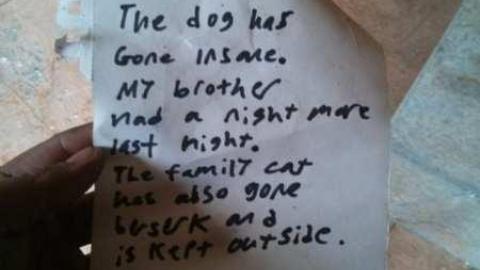 The dog has
Gone Insane.
MY brother
had a night more
last night.
The family cat
has also gone
beserk and
is kept outside.